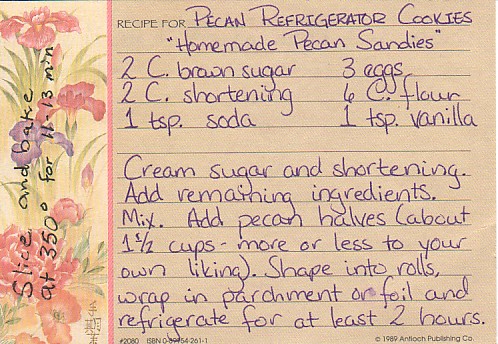 RECIPE FOR PECAN REFRIGERATOR COOKIES
"Homemade Pecan Sandies"
2 C. brown sugar 3 eggs
2 C. shortening 6 C. flour
1 tsp. soda 1 tsp. vanilla
Cream sugar and shortening.
Add remaining ingredients.
Mix. Add pecan halves (about
1 1/2 cups - more or less to your
own liking). Shape into rolls,
wrap in parchment or foil and
refrigerate for at least 2 hours.
Slice and bake
at 350° for 11-13 min
#2080 ISBN 0-89954-261-1
© 1989 Antioch Publishing Co.